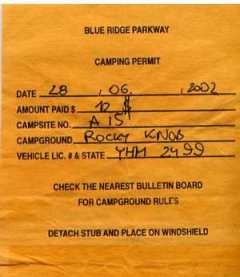 BLUE RIDGE PARKWAY
CAMPING PERMIT
DATE 28 , 06, , 2002
AMOUNT PAID $ 12 $
CAMPSITE NO. A 15
CAMPGROUND ROCKY KNOB
VEHICLE LIC. # & STATE YHM 2499
CHECK THE NEAREST BULLETIN BOARD
FOR CAMPGROUND RULES
DETACH STUB AND PLACE ON WINDSHIELD